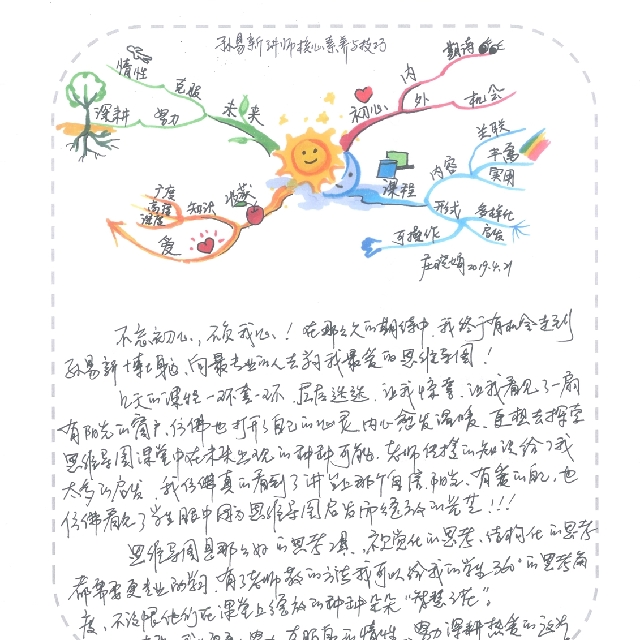 孙易新讲师核心素养与技巧
惰性
克服
深耕
努力
未来
初心
内
外
期待
机会
课程
内容
关联
丰富
实用
形式
多样化
启发
可操作
收获
知识
广度
高度
深度
爱
庄晓娟2019.4.21
不忘初心，不负我心！在那么久的期待中，我终于有机会走到
孙易新博士身边，向最专业的人去学习我最爱的思维导图！
几天的课程一环套一环，层层递进，让我惊喜，让我看见了一扇
有阳光的窗户，仿佛也打开了自己的心灵，内心愈发温暖，更想去探索
思维导图课堂中在未来出现的种种可能。老师传授的知识给了我
太多的启发，我仿佛真的看到了讲台上那个自信、阳光、有爱的自己，也
仿佛看见了学生眼中因为思维导图启发而绽放的光芒！！！
思维导图是那么好的思考工具，视觉化的思考、结构化的思考
都需要更专业的学习，有了老师教的方法我可以给我的学生360°的思考角
度，不设限他们在课堂上绽放的种种朵朵“智慧之花”。